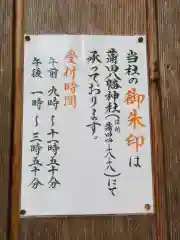 当社の御朱印は
蒲田八幡神社（住所 蒲田四-十八-十八）にて
承っております。
受付時間
午前 九時～十一時五十分
午後 一時～三時五十分